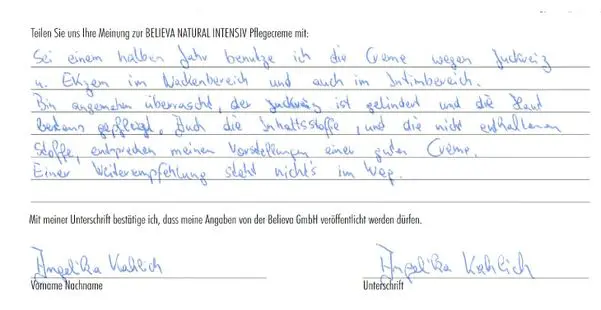 Teilen Sie uns Ihre Meinung zur BELIEVA NATURAL INTENSIV Pflegecreme mit:
Seit einem halben Jahr benutze ich die Creme wegen Juckreiz
u. Ekzem im Nackenbereich und auch im Intimbereich.
Bin angenehm überrascht, der Juckreiz ist gelindert und die Haut
bestens gepflegt. Auch die Inhaltsstoffe, und die nicht enthaltenen
Stoffe, entsprechen meinen Vorstellungen einer guten Creme.
Einer Weiterempfehlung steht nichts im Weg.
Mit meiner Unterschrift bestätige ich, dass meine Angaben von der Believa GmbH veröffentlicht werden dürfen.
Angelika Kahlich Angelika Kahlich
Vorname Nachname Unterschrift